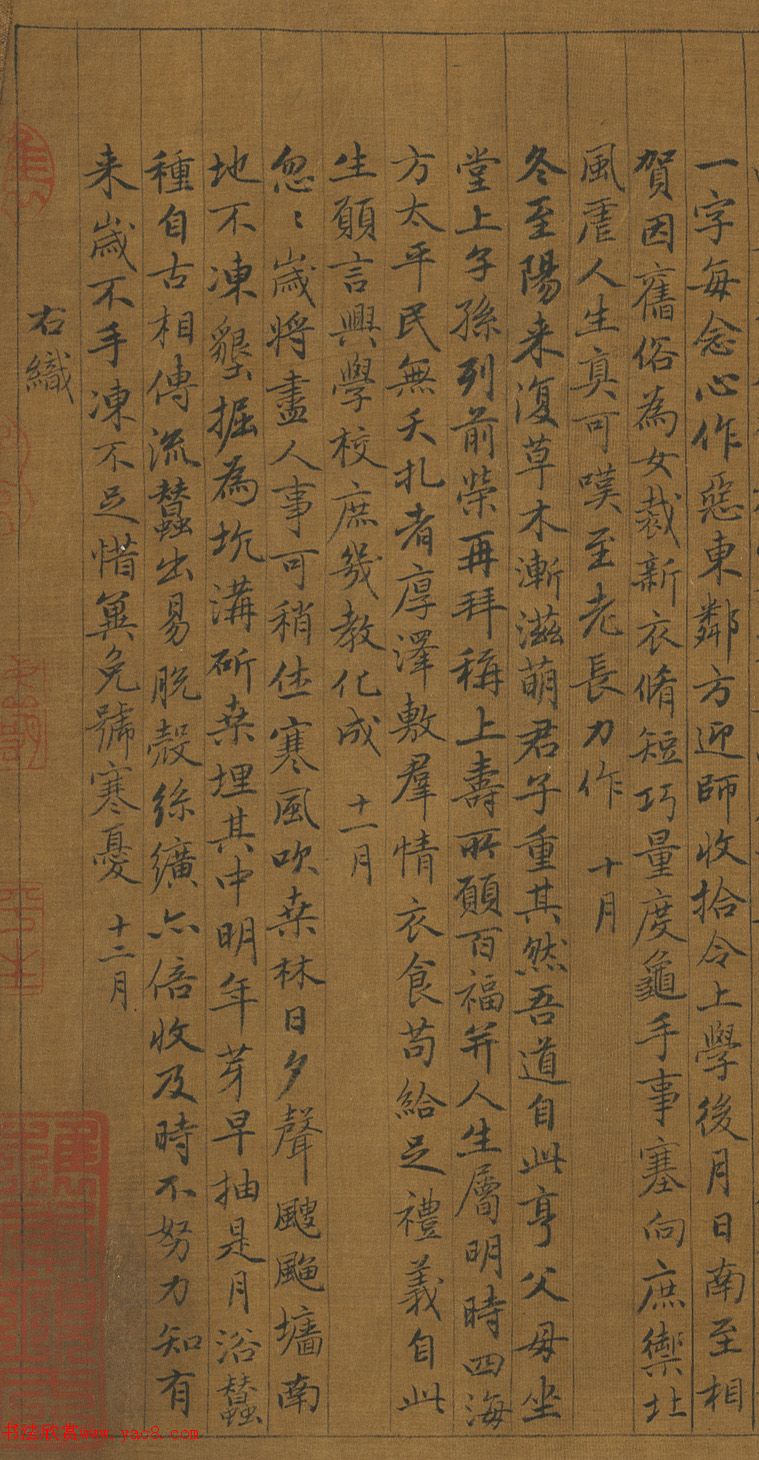 一字每念心作惡東鄰方迎師收拾令上學後月日南至相
賀因舊俗為女裁新衣脩短巧量度龜手事塞向庶禦北
風虐人生真可嘆至老長力作 十月
冬至陽来復草木漸滋萌君子重其然吾道自此亨父母坐
堂上子孫列前榮再拜稱上壽所願百福并人生屬明時四海
方太平民無夭札者厚澤敷羣情衣食苟給足禮義自此
生願言興學校庶幾教化成 十一月
忽〻歲將盡人事可稍休寒風吹桒林日夕聲颼飀墻南
地不凍墾掘為坑溝斫桒埋其中明年芽早抽是月浴蠶
種自古相傳流蠶出易脫殼絲纊亦倍收及時不努力知有
来歲不手凍不足惜兾免號寒憂 十二月
右織
书法欣赏www.yac8.com